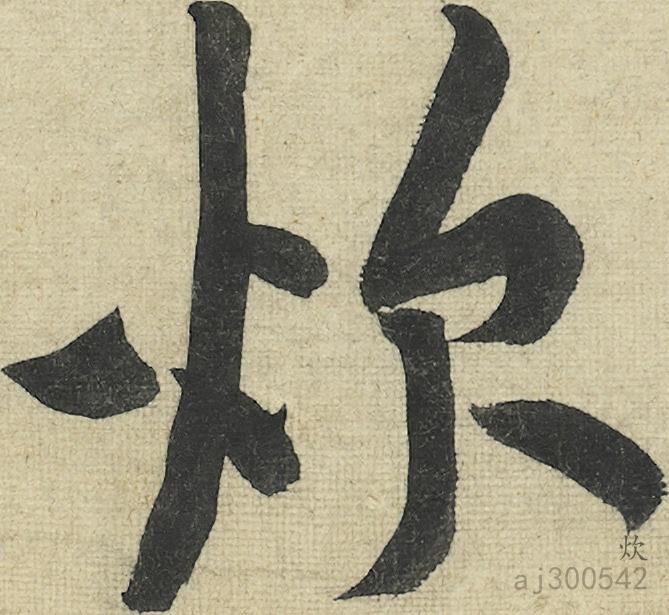 炊
炊
aj300542